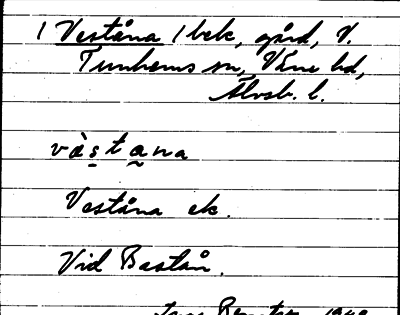 / Veståna / bek, gård, V.
Tunhems sn, Väne hd,
Älvsb. l.
vàstana
Veståna ek.
Vid Bastån.